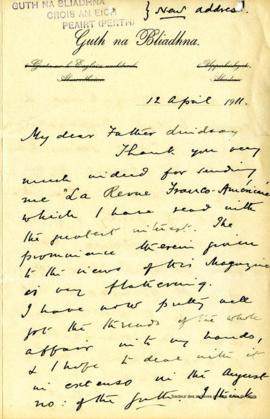 GUTH NA BLIADHNA
CROIS AN EICA
PEAIRT (PERTH)
} New address.
Guth na Bliadhna.
12 April 1911.
My dear Father Lindsay
Thank you very
much indeed for sending
me "La Revue Franco-Américaine
which I have read with
the greatest interest. The
prominence therein given
to the views of this Magazine
is very flattering.
I have now pretty well
got the threads of the whole
affair into my hands,
& I hope to deal with it
in extenso in the August
no: of the Guth. I think